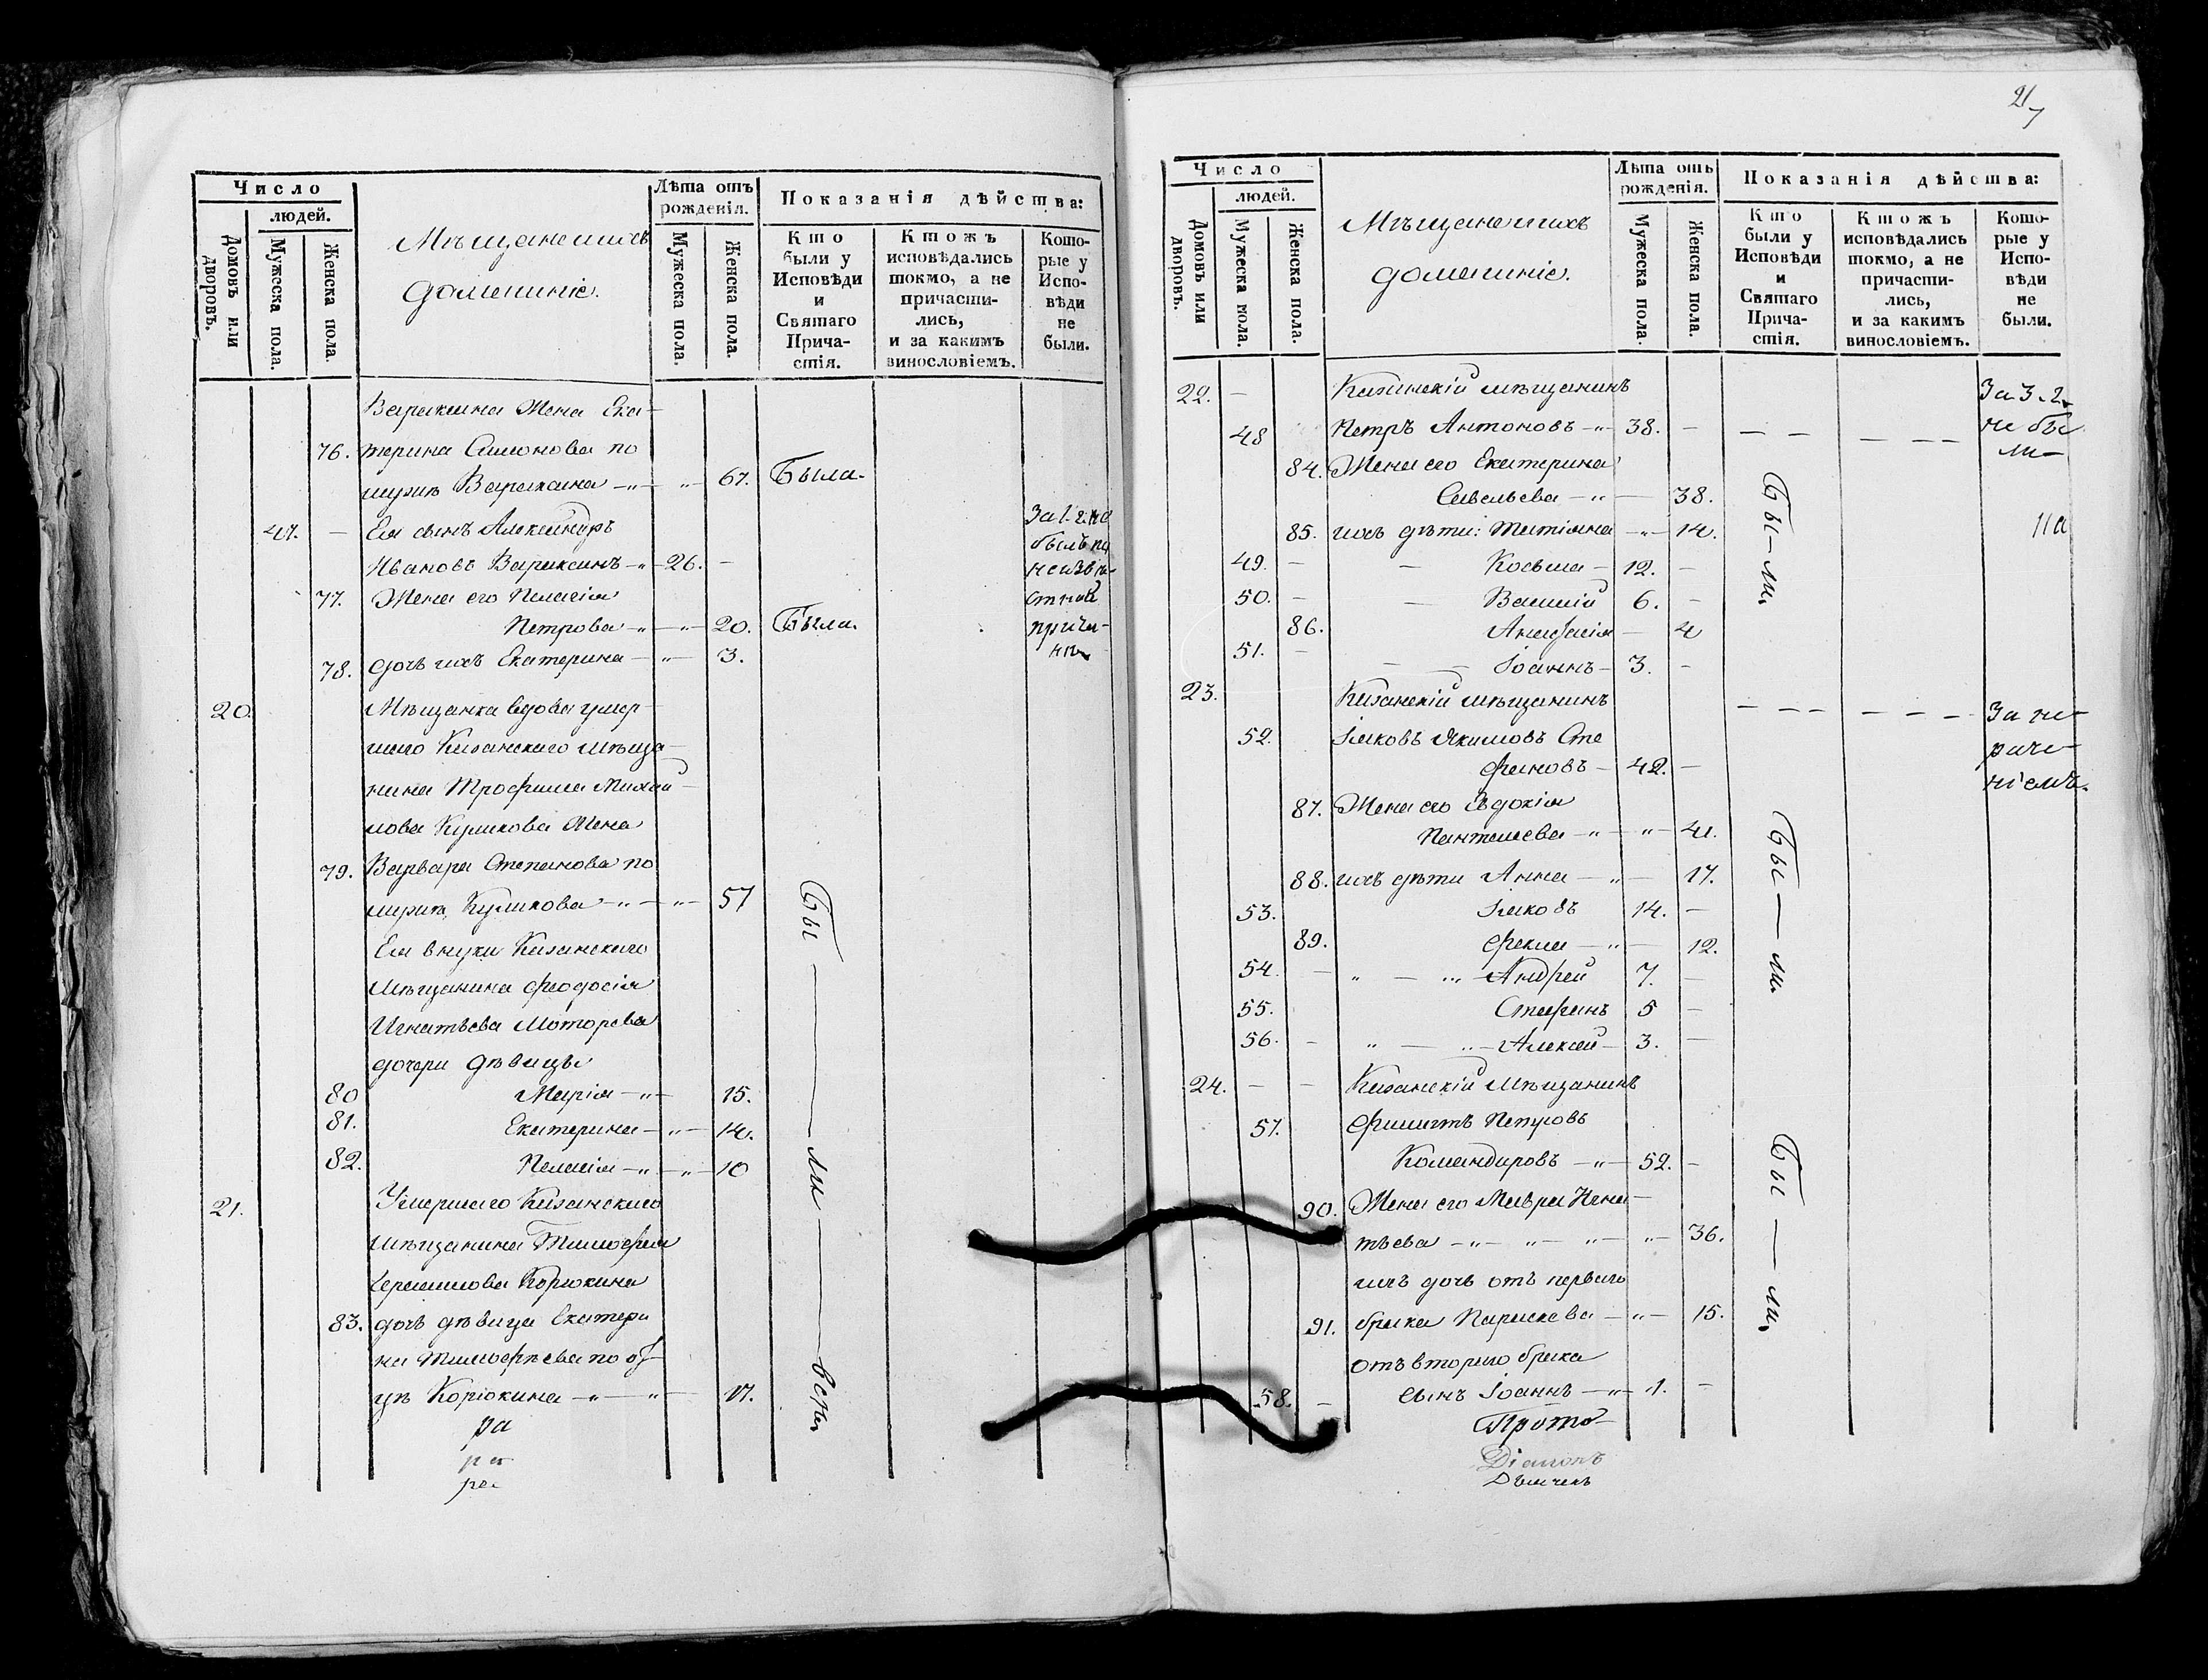 Число
людей.
Домовъ или дворовъ.
Мужеска пола.
Женска пола.
Мѣщане и ихъ
домашніе.
Лѣта отъ
рожденія.
Мужеска пола.
Женска пола.
Показанія дѣйства:
Кто
были у
Исповѣди
и
Святаго
Прича-
стія.
Ктожъ
исповѣдались
токмо, а не
причасти-
лись,
и за какимъ
винословіемъ.
Кото-
рые у
Испо-
вѣди
не
были.
Вараксина Жена Ека-
76. терина Симонова по
мужѣ Вараксина -„- -„- 67. Была.
47. - Ея сынъ Александръ
Ивановъ Вараксинъ -„- 26. -
За 1. г. не
былъ по
неизвѣ-
стной
причи-
нѣ
77. Жена его Пелагія
Петрова -„- -„- 20. Была.
78. дочь ихъ Екатерина -„- 3.
20. Мѣщанка вдова умер-
шаго Казанскаго мѣща-
нина Трофима Михай-
лова Куликова Жена
79. Варвара Степанова по
мужѣ Куликова -„- -„- 57
Ея внуки Казанскаго
Мѣщанина Феодосія
Игнатьева Моторова
дочери дѣвицы
80 Марія -„- 15.
81. Екатерина -„- 14.
82. Пелагія -„- -„- 10
21. Умершаго Казанскаго
мѣщанина Тимофея
Герасимова Корюкина
83. дочь дѣвица Екатери
на Тимофѣева по от-
цѣ Корюкина -„- -„- 17.
Бы — ли — всѣ
ра
ра
ра
21
7
Число
людей.
Домовъ или дворовъ.
Мужеска пола.
Женска пола.
Мѣщане и ихъ
домашніе.
Лѣта отъ
рожденія.
Мужеска пола.
Женска пола.
Показанія дѣйства:
Кто
были у
Исповѣди
и
Святаго
Прича-
стія.
Ктожъ
исповѣдались
токмо, а не
причасти-
лись,
и за какимъ
винословіемъ.
Кото-
рые у
Испо-
вѣди
не
были.
22. - Казанскій мѣщанинъ
48 Петръ Антоновъ -„- 38. - - - - - -
За 3. г.
не бы
ли-
84. Жена его Екатерина
Савельева -„- - 38.
85. ихъ дѣти: Татіяна -„- 14.
49. - - Косьма - 12. -
50. - - Василій 6. -
86. Анастасія - 4
51. - - - Іоаннъ - 3. -
Бы-ли.
23. Казанскій мѣщанинъ - - - - - -
52. Іаковъ Якимовъ Сте
фановъ - 42. -
За не-
раче-
ніемъ.
87. Жена его Евдокія
Пантелеева -„- -„- 41.
88. ихъ дѣти Анна -„- - 17.
53. Іаковъ 14. -
89. Фекла -„- 12.
54. - „ - „ - Андрей 7. -
55. Стефанъ 5 -
56. - „ - „ - Алексей - 3. -
Бы — ли.
24. - - Казанскій Мѣщанинъ
57. Филиппъ Петровъ
Командировъ -„- 52. -
90. Жена его Мавра Игна-
тьева -„- „- „- „- 36.
ихъ дочь отъ перваго
91. брака Параскева -„- 15.
отъ втораго брака
58. - сынъ Іоаннъ -„- 1. -
Бы — ли.
Прото-
Діаконъ
Дьячекъ